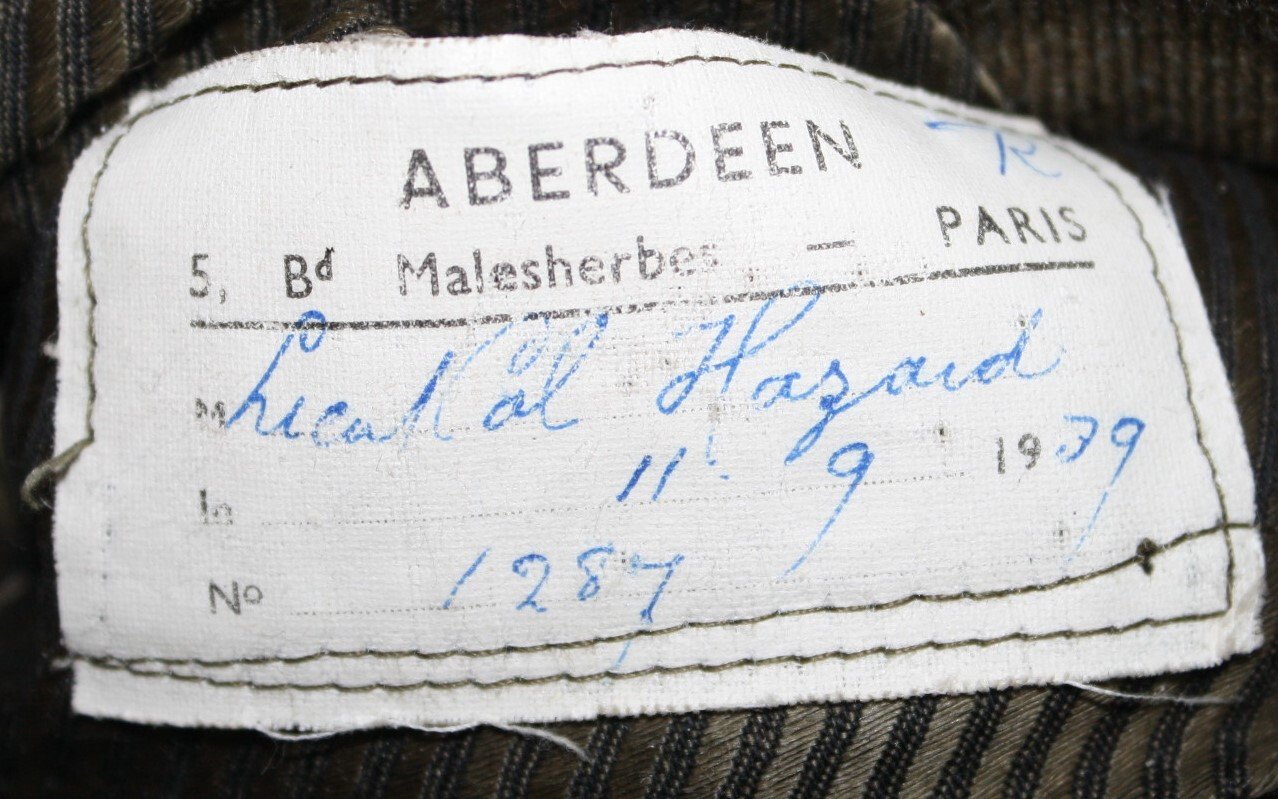 ABERDEEN R
5, Bd Malesherbes — PARIS
M Lieut Col Hazard
le 11. 9 1939
No 1287